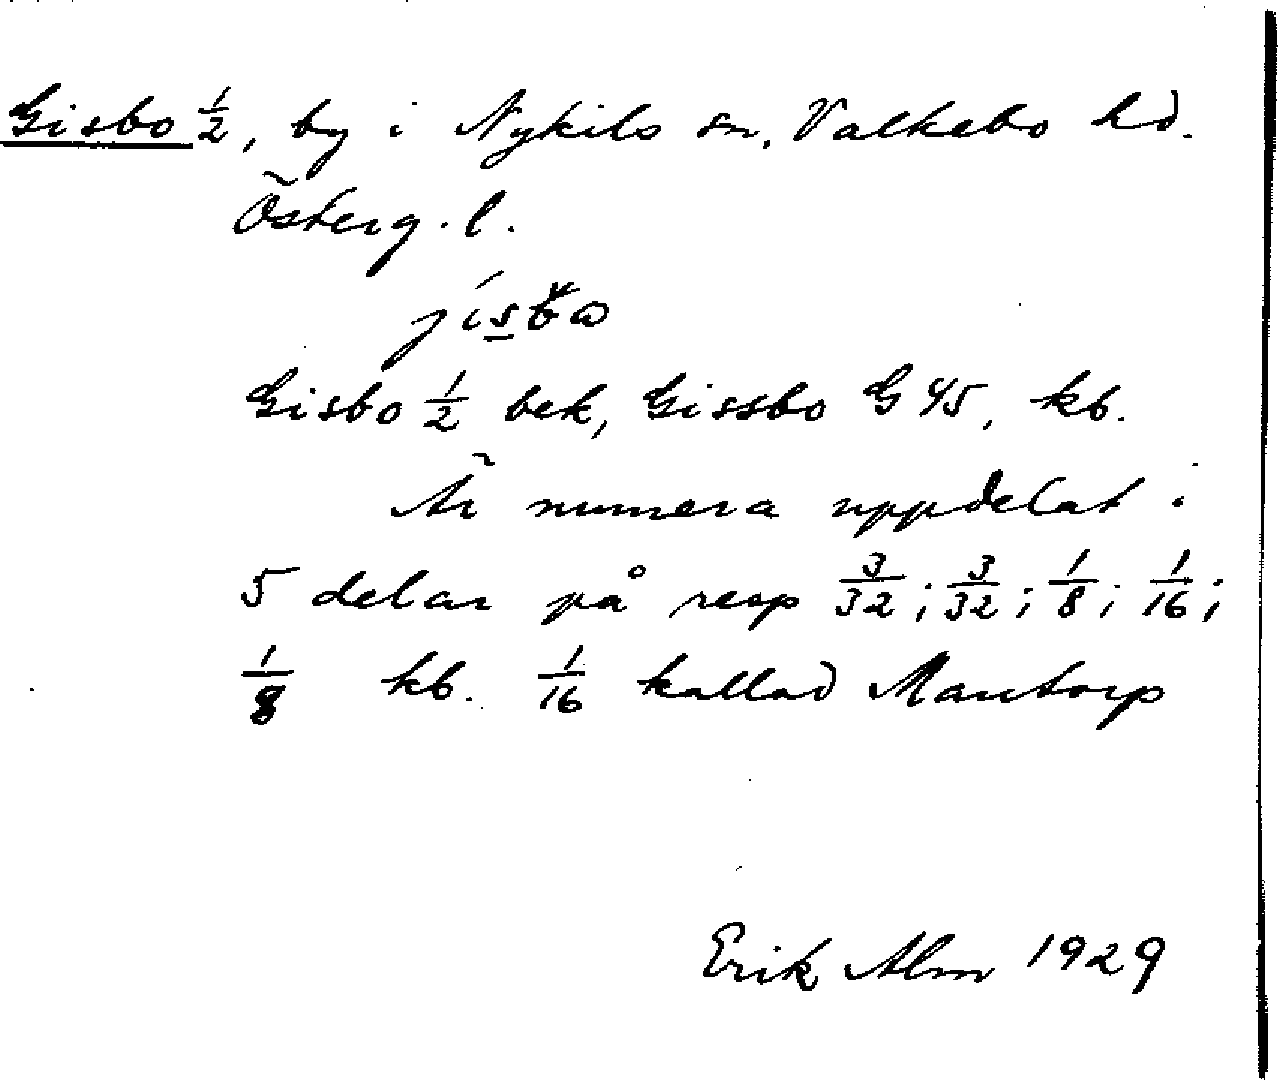 Gisbo 1/2, by i Nykils sn, Valkebo hd.
Österg. l.
Gisbo 1/2 bek, Gissbo G 45, kb.
Är numera uppdelat i
5 delar på resp 3/32; 3/32; 1/8; 1/16;
1/8 kb. 1/16 kallad Mantorp
Erik Alm 1929